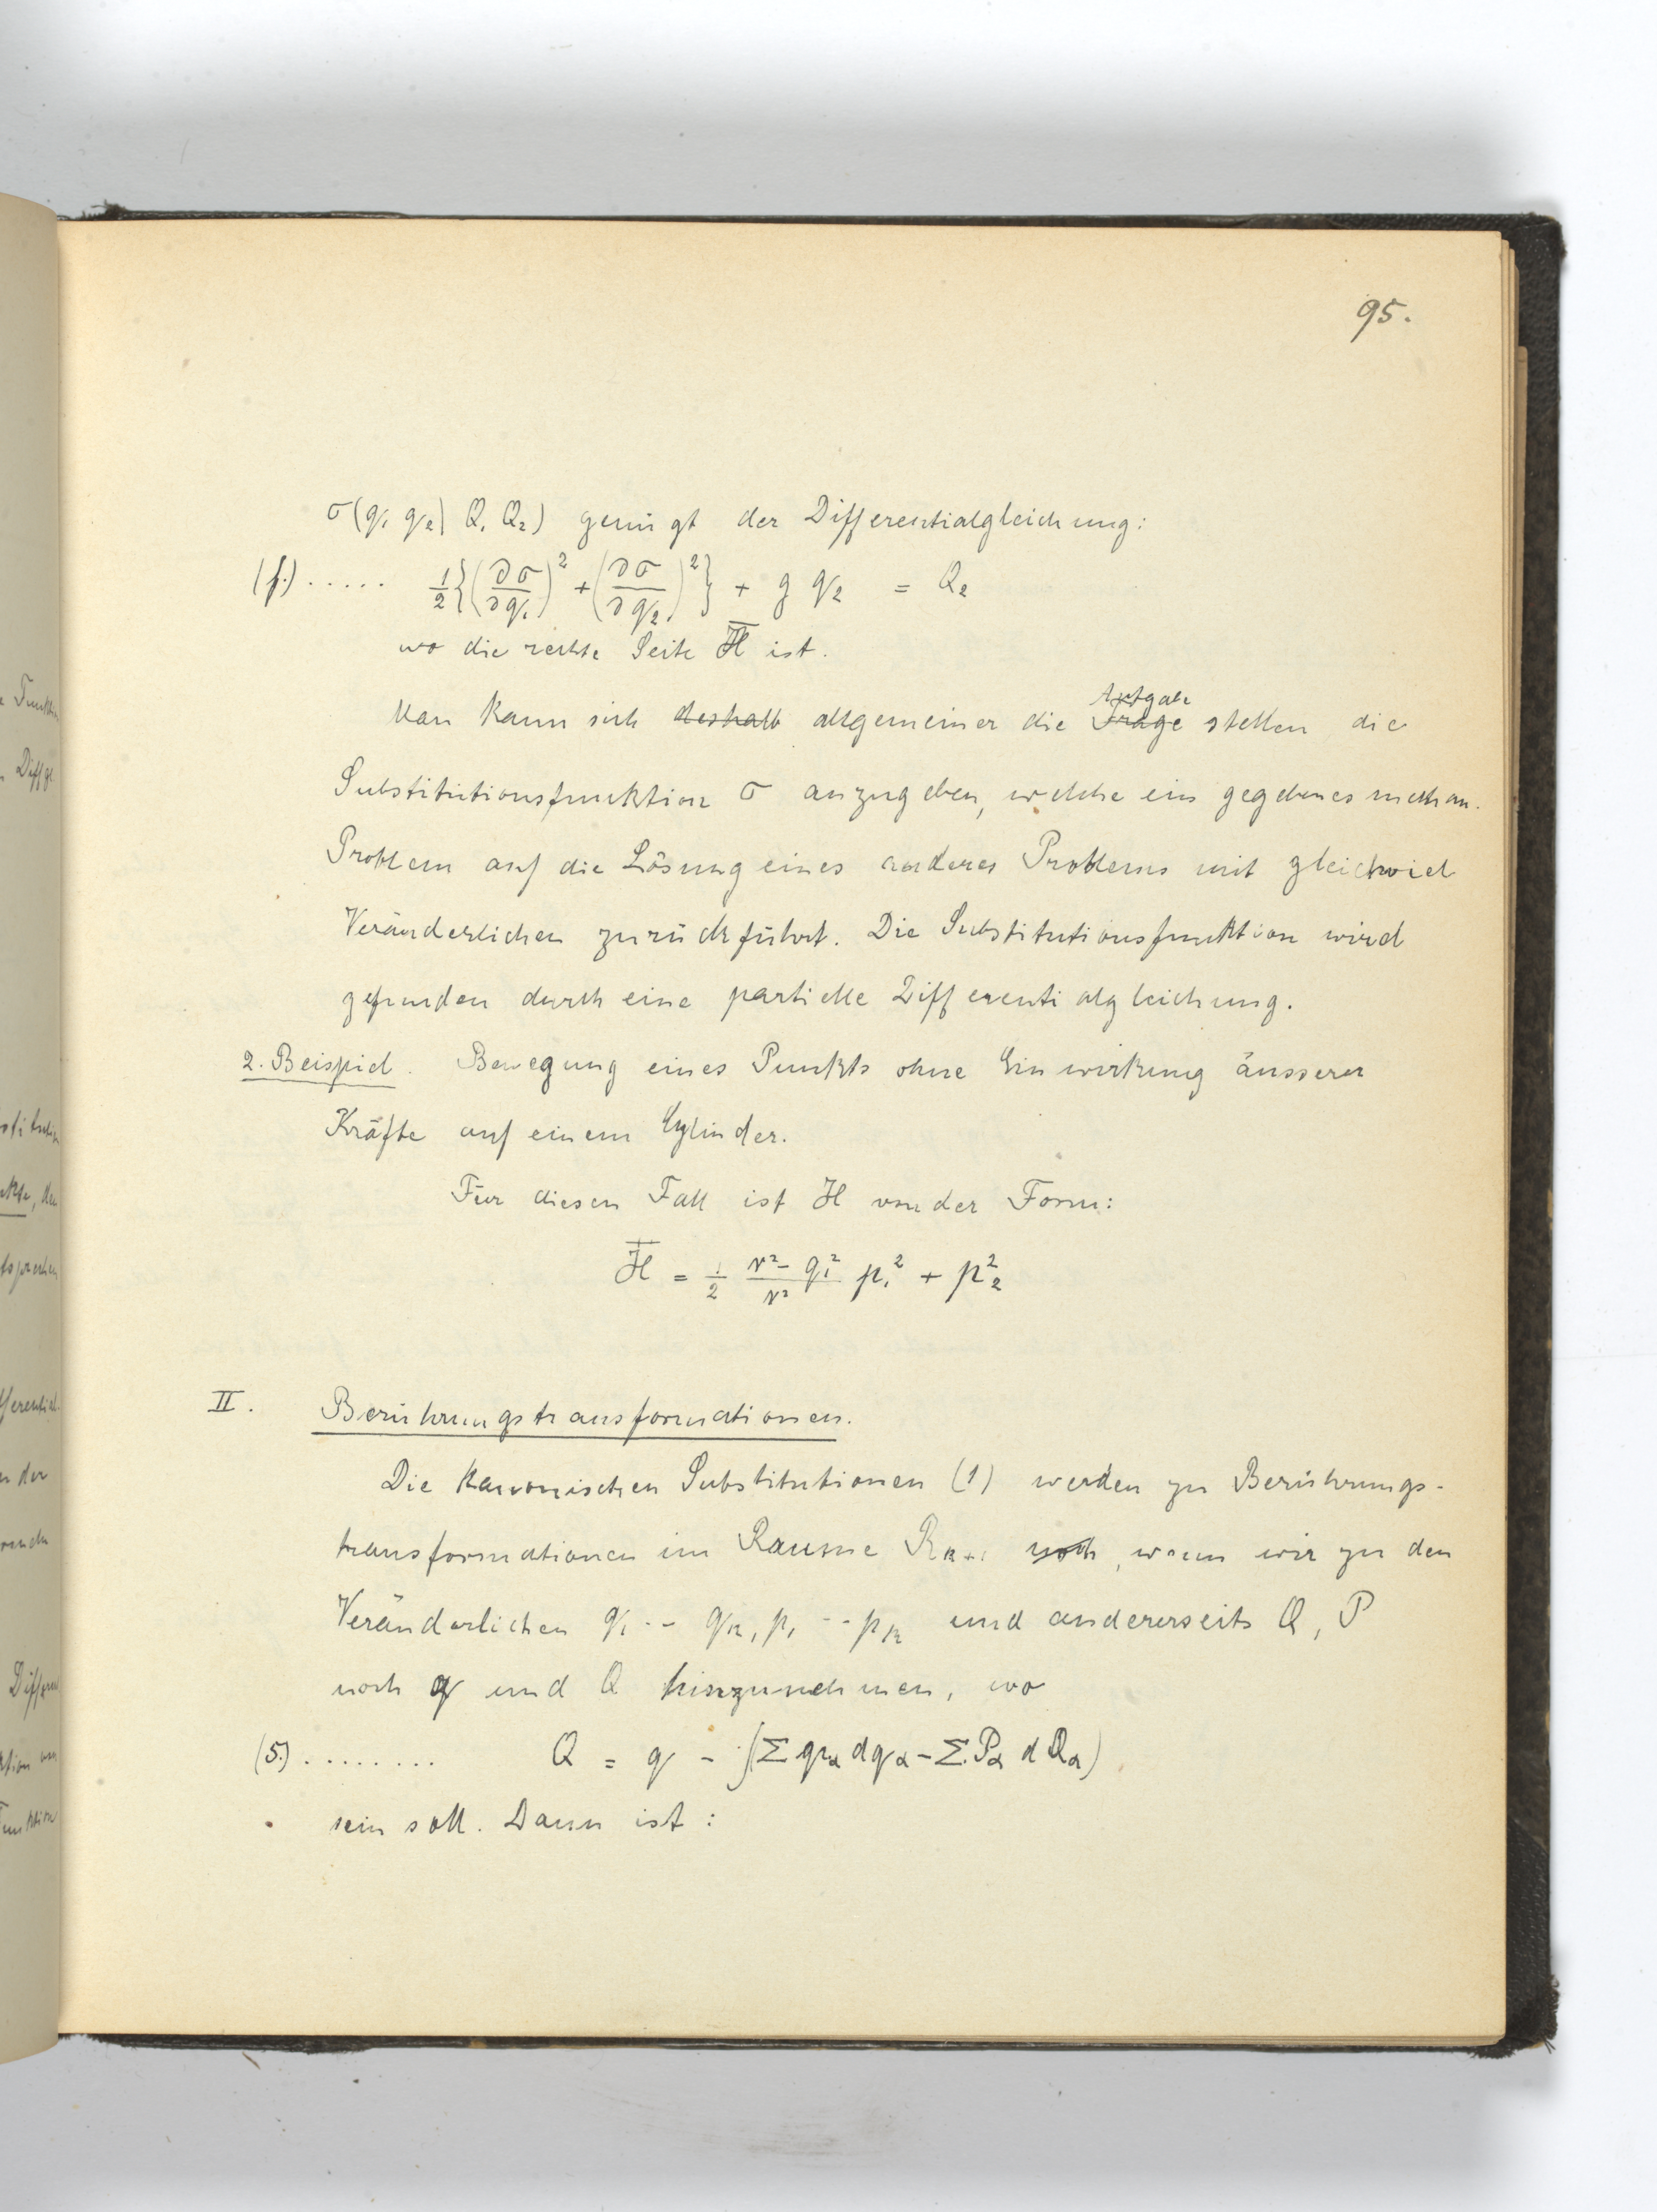 95.
σ(q₁ q₂| Q₁ Q₂) genügt der Differentialgleichung:
(f.) ..... ½{(∂σ/∂q₁)² + (∂σ/∂q₂)²} + g q₂ = Q₂
wo die rechte Seite H̅ ist.
Man kann sich deshalb allgemeiner die Frage Aufgabe stellen die
Substitutionsfunktion σ anzugeben, welche ein gegebenes mechan.
Problem auf die Lösung eines anderes Problems mit gleichviel
Veränderlichen zurückführt. Die Substitutionsfunktion wird
gefunden durch eine partielle Differentialgleichung.
2. Beispiel. Bewegung eines Punkts ohne Einwirkung äusserer
Kräfte auf einem Cylinder.
Für diesen Fall ist H von der Form:
H̅ = ½ (r² - q₁²)/r² p₁² + p₂²
II. Berührungstransformationen.
Die kanonischen Substitutionen (1) werden zu Berührungs-
transformationen im Raume Rₖ₊₁ noch, wenn wir zu den
Veränderlichen q₁ -- qₖ, p₁ -- pₖ und andererseits Q, P
noch q und Q hinzunehmen, wo
(5.) ........ Q = q - ∫(Σ pα dqα - Σ Pα dQα)
sein soll. Dann ist: